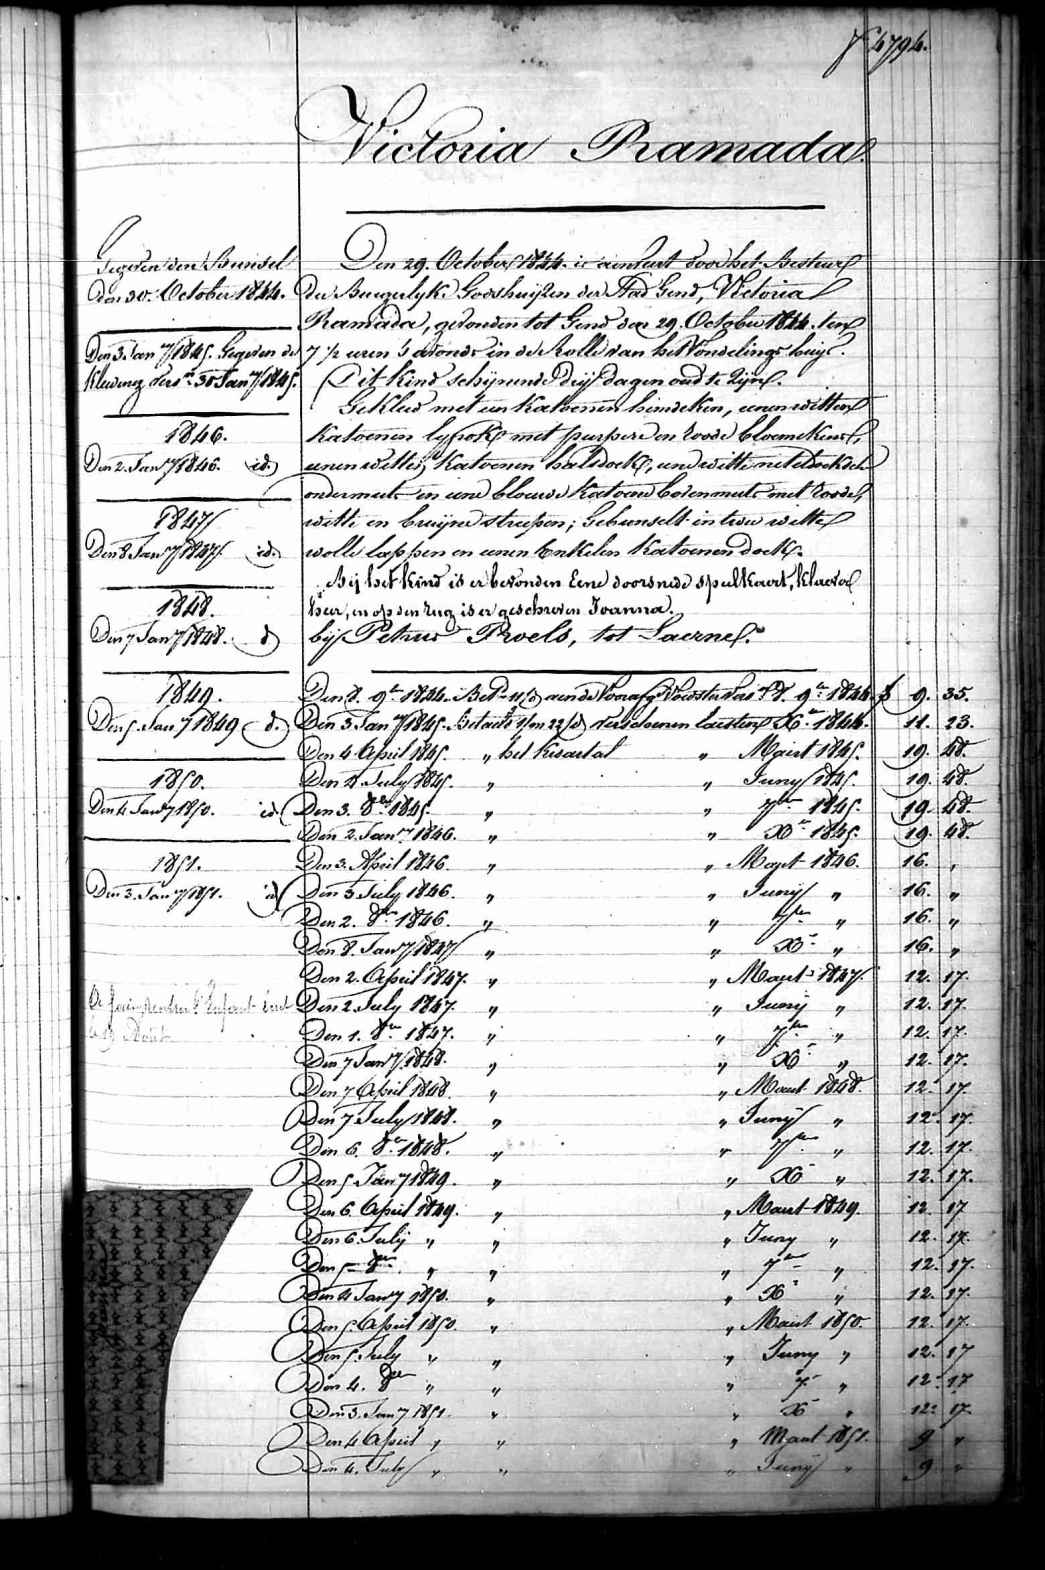 4794.
Victoria Ramada.
Gegeven den Bunsel
den 30. October 1844.
Den 3. Jan.ry 1845. Gegeven de
1846.
Den 2. Jan.ry 1846. id.
1847
Den 8. Jan.ry 1847. id.
1848.
Den 7 Jan.ry 1848. d
1849.
Den 5. Jan.ry 1849 d.
1850.
Den 4 Jan.ry 1850. id.
1851.
Den 3. Jan.ry 1851. id
Den 29. October 1844. is aenveert door het Bestuer
der Burgerlyke Godshuyzen der Stad Gend, Victoria
Ramada, gevonden tot Gend den 29. October 1844. ten
7 ½ uren 's avonds in de Rolle van het Vondelingshuys.
Dit kind schynende dry dagen oud te zyn.
Gekleed met een katoenen hemdeken, eenen witten
katoenen lyfrok met purpere en roode bloemekens,
eenen witten katoenen halsdoek, eene witte neteldoeksche
ondermuts en eene blouwe katoene bovenmuts met roode,
witte en bruyne streepen; Gebunselt in twee witte
wolle lappen en eenen enkelen katoenen doek.
Bij het kind is er bevonden Eene doorsnede speelkaert, klaever
heer, en op den rug is er geschreven Joanna.
bij Petrus Proels, tot Laerne.
Den 8. 9er 1844. 8. 9er 1844. 9. 35.
Den 3 Jan.ry 1845. verschenen laesten Xer 1844. 11. 23.
Den 4 April 1845. " het kwartal " Maert 1845. 19. 48.
Den 4. July 1845. " " Juny 1845. 19. 48.
Den 3. 8er 1845. " " 7ber 1845. 19. 48.
Den 2. Jan.ry 1846. " " Xer 1845. 19. 48.
Den 3. April 1846. " " Maert 1846. 16. "
Den 3 July 1846. " " Juny " 16. "
Den 2. 8er 1846. " " 7ber " 16. "
Den 8. Jan.ry 1847 " " Xr " 16. "
Den 2. April 1847. " " Maert 1847. 12. 17.
Den 2. July 1847. " " Juny " 12. 17.
Den 1. 8er 1847. " " 7ber " 12. 17.
Den 7 Jan.ry 1848. " " Xr " 12. 17.
Den 7 April 1848. " " Maert 1848. 12. 17.
Den 7 July 1848. " " Juny " 12. 17.
Den 6. 8er 1848. " " 7ber " 12. 17.
Den 5 Jan.ry 1849. " " Xr " 12. 17.
Den 6. April 1849. " " Maert 1849. 12. 17
Den 6. July " " " Juny " 12. 17.
Den 5 8er " " " 7ber " 12. 17.
Den 4 Jan.ry 1850. " " Xr " 12. 17.
Den 5. April 1850. " " Maert 1850. 12. 17.
Den 5 July " " " Juny " 12. 17
Den 4. 8er " " " 7r " 12. 17
Den 3. Jan.ry 1851. " " Xr " 12. 17.
Den 4 April " " " Maert 1851. 9 "
Den 4. July " " " Juny " 9 "